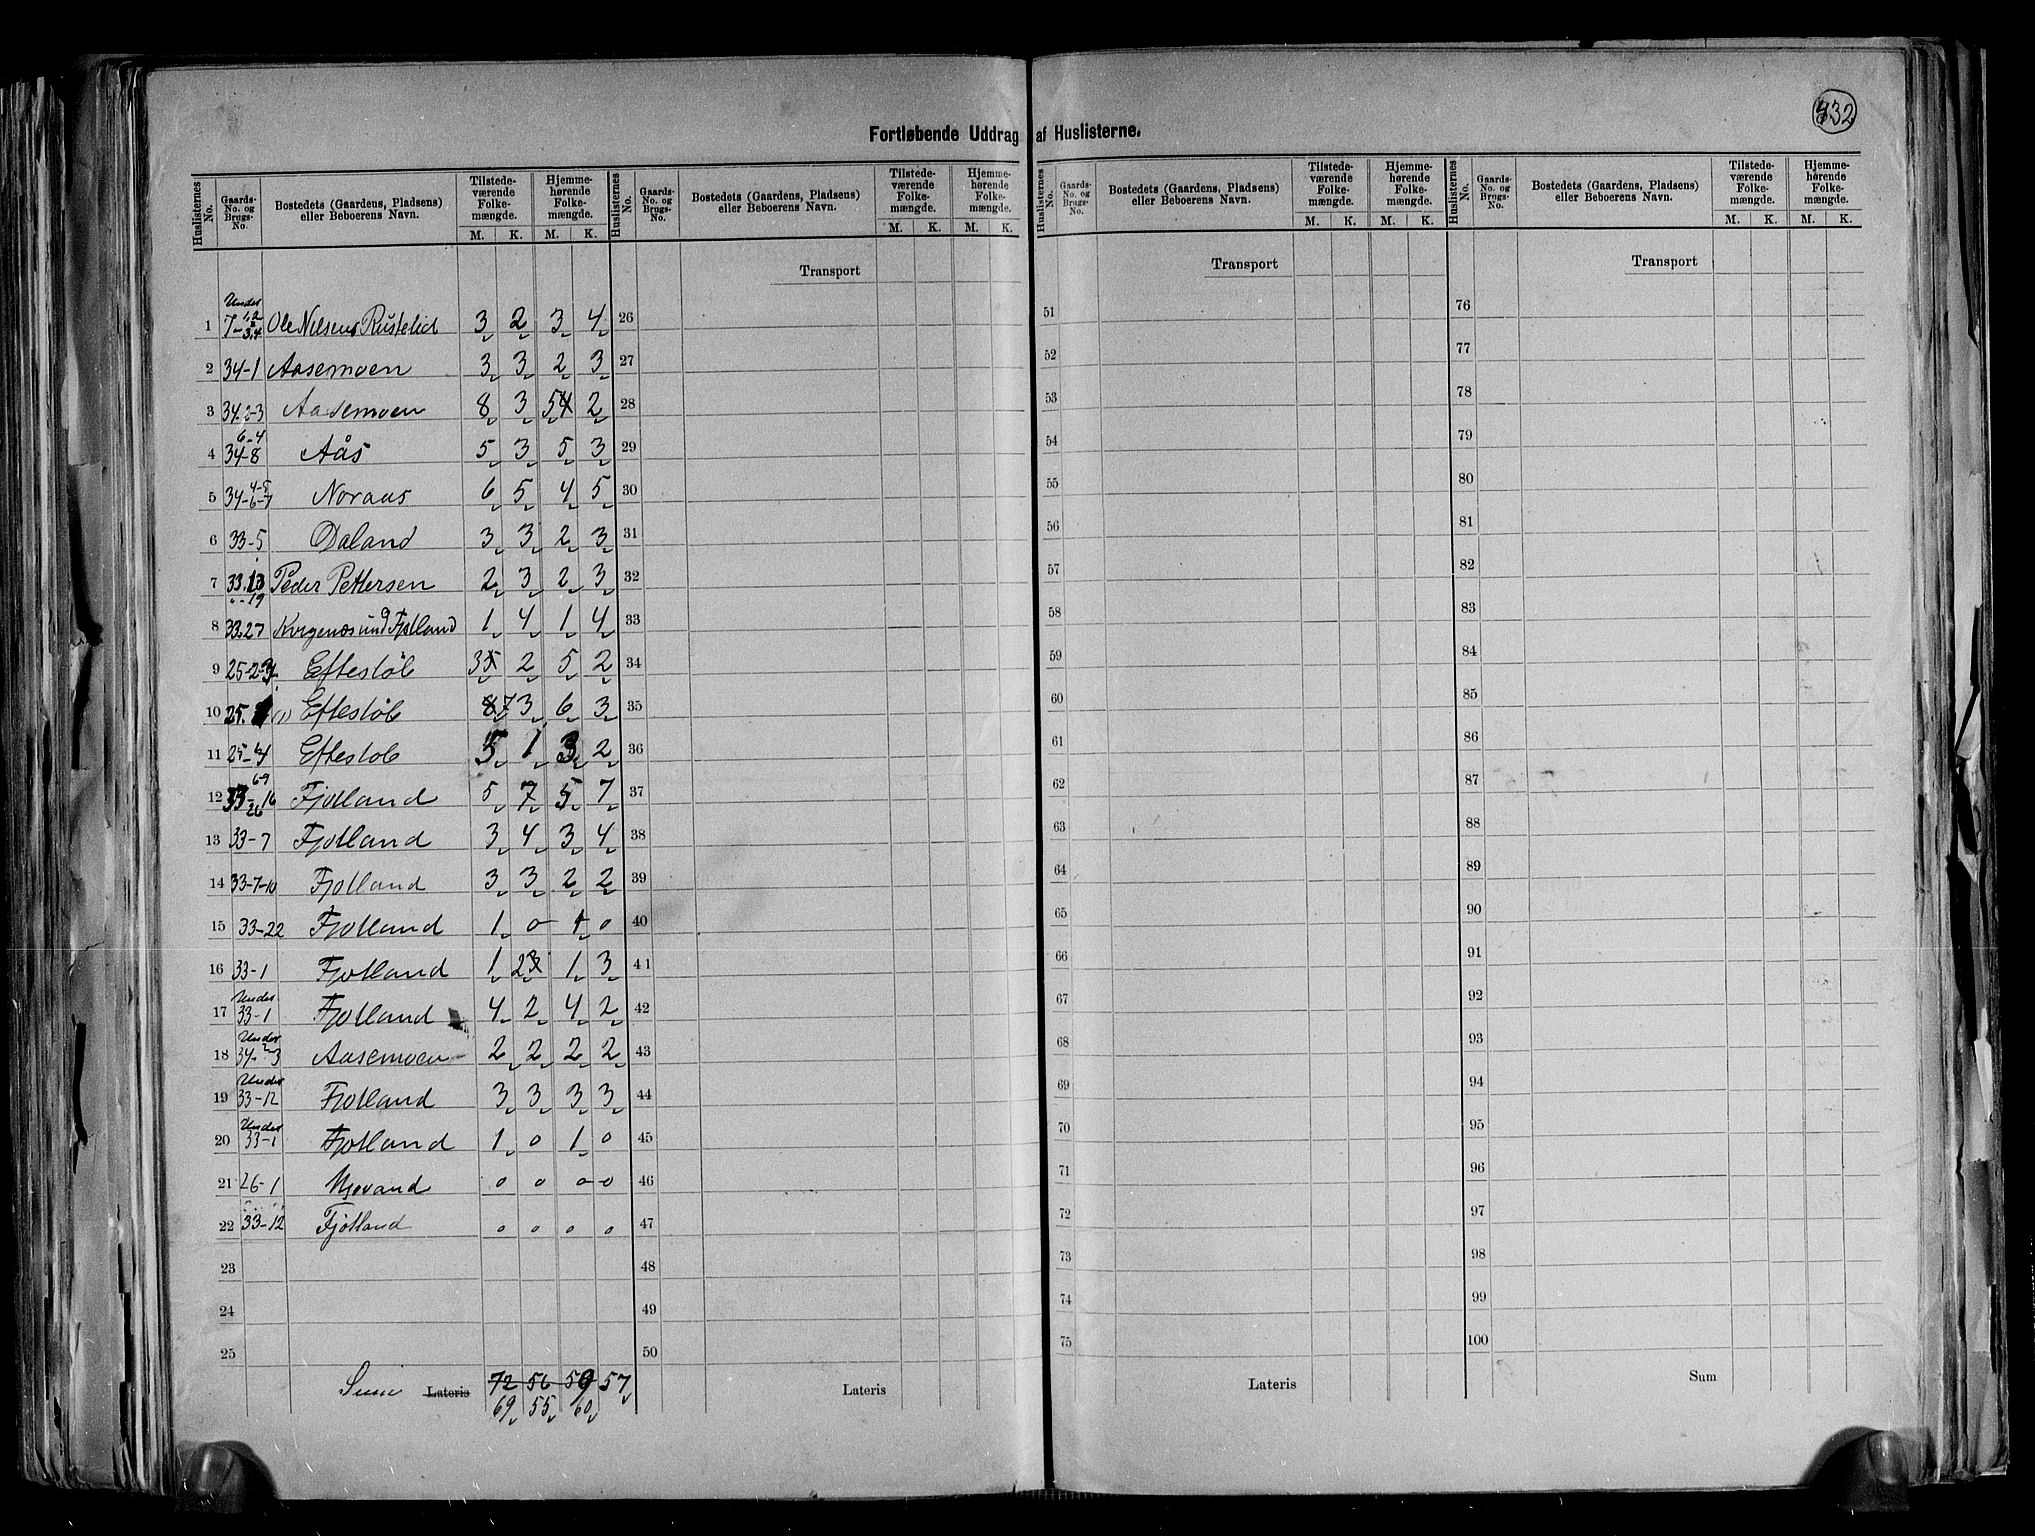 432
Fortløbende Uddrag af Huslisterne.
Huslisternes No. | Gaards-No. og Brugs-No. | Bostedets (Gaardens, Pladsens) eller Beboerens Navn. | Tilstede-værende Folke-mængde. M. K. | Hjemme-hørende Folke-mængde. M. K.
Huslisternes No. | Gaards-No. og Brugs-No. | Bostedets (Gaardens, Pladsens) eller Beboerens Navn. | Tilstede-værende Folke-mængde. M. K. | Hjemme-hørende Folke-mængde. M. K.
Huslisternes No. | Gaards-No. og Brugs-No. | Bostedets (Gaardens, Pladsens) eller Beboerens Navn. | Tilstede-værende Folke-mængde. M. K. | Hjemme-hørende Folke-mængde. M. K.
Huslisternes No. | Gaards-No. og Brugs-No. | Bostedets (Gaardens, Pladsens) eller Beboerens Navn. | Tilstede-værende Folke-mængde. M. K. | Hjemme-hørende Folke-mængde. M. K.
Transport Transport Transport
1 Under 7-1,2 3,4 Ole Nilsens Rustelid 3 2 3 4 26 51 76
2 34-1 Aasemoen 3 3 2 3 27 52 77
3 34.2-3 Aasemoen 8 3 5 4 2 28 53 78
4 6-4 34-8 Aås 5 3 5 3 29 54 79
5 34-4-5 -6-7 Noraas 6 5 4 5 30 55 80
6 33-5 Daland 3 3 2 3 31 56 81
7 33.13 Peder Pettersen 2 3 2 3 32 57 82
8 „-19 33.27 Kvigenæs und Fjotland 1 4 1 4 33 58 83
9 25-2-3 Eftestöl 3 5 2 5 2 34 59 84
10 25. Eftestöl 8 7 3 6 3 35 60 85
11 25-4 Eftestöl 5 1 3 2 36 61 86
12 33-6-9 16 26 Fjotland 5 7 5 7 37 62 87
13 33-7 Fjotland 3 4 3 4 38 63 88
14 33-7-10 Fjotland 3 3 2 2 39 64 89
15 33-22 Fjotland 1 0 1 0 40 65 90
16 33-1 Fjotland 1 2 3 1 3 41 66 91
17 Under 33-1 Fjotland 4 2 4 2 42 67 92
18 Under 34-2-3 Aasemoen 2 2 2 2 43 68 93
19 Under 33-12 Fjotland 3 3 3 3 44 69 94
20 Under 33-1 Fjotland 1 0 1 0 45 70 95
21 26-1 0 0 0 0 46 71 96
22 33-12 Fjotland 0 0 0 0 47 72 97
23 48 73 98
24 49 74 99
25 50 75 100
Sum Lateris 72 56 59 57 Lateris Lateris Sum
69 55 60